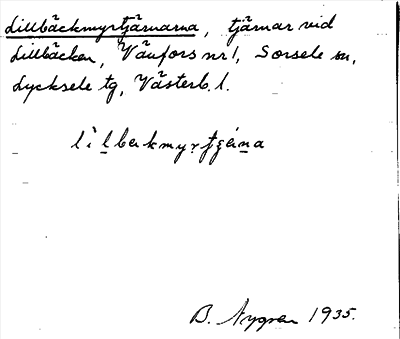 Lillbäckmyrtjärnarna, tjärnar vid
Lillbäcken, Vänfors nr 1, Sorsele sn,
Lycksele tg, Västerb. l.
B. Nygren 1935.